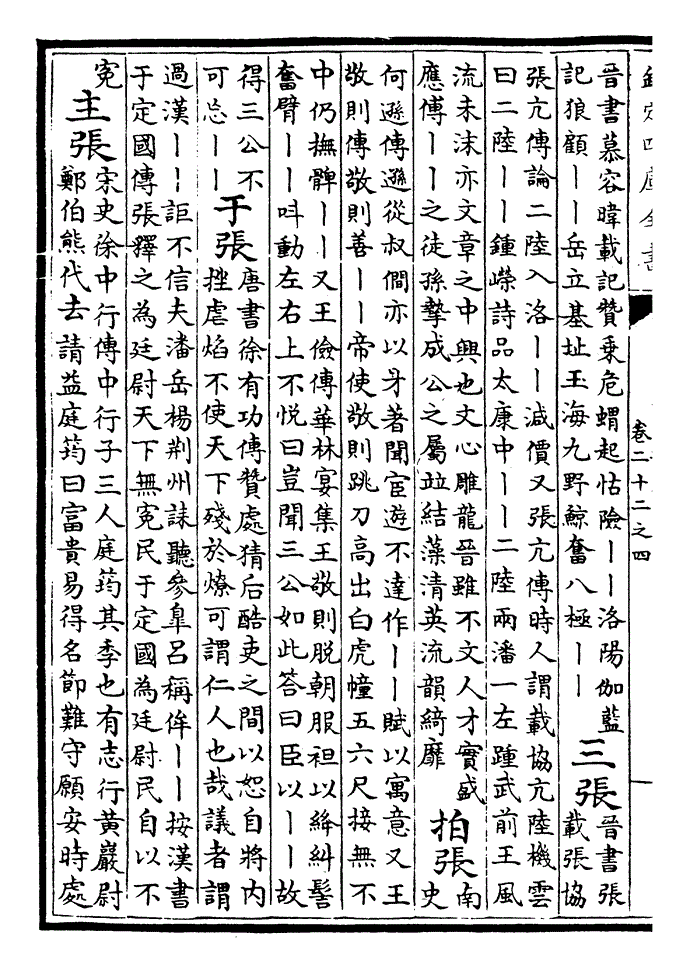 欽定四庫全書
卷二十二之四
晉書慕容暐載記贊乗危蝟起怙險丨丨洛陽伽藍
記狼顧丨丨岳立基址玉海九野鯨奮八極丨丨
三張
晉書張
載張協
張亢傳論二陸入洛丨丨減價又張亢傳時人謂載協亢陸機雲
曰二陸丨丨鍾嶸詩品太康中丨丨二陸兩潘一左踵武前王風
流未沫亦文章之中興也文心雕龍晉雖不文人才實盛
應傅丨丨之徒孫摯成公之屬竝結藻清英流韻綺靡
拍張
南
史
何遜傳遜從叔僩亦以才著聞宦遊不達作丨丨賦以寓意又王
敬則傳敬則善丨丨帝使敬則跳刀高出白虎幢五六尺接無不
中仍撫髀丨丨又王儉傳華林宴集王敬則脱朝服袒以絳糾髻
奮臂丨丨呌動左右上不悦曰豈聞三公如此答曰臣以丨丨故
得三公不
可忘丨丨
于張
唐書徐有功傳贊處猜后酷吏之間以恕自將内
挫虐焰不使天下殘於燎可謂仁人也哉議者謂
過漢丨丨詎不信夫潘岳楊荆州誄聽參臯吕稱侔丨丨按漢書
于定國傳張釋之為廷尉天下無寃民于定國為廷尉民自以不
寃
主張
宋史徐中行傳中行子三人庭筠其季也有志行黄巖尉
鄭伯熊代去請益庭筠曰富貴易得名節難守願安時處